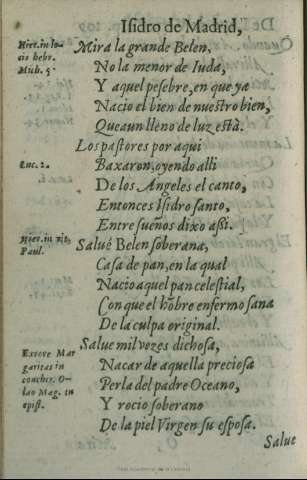 Isidro de Madrid,
Hier. in lo-
cis hebr.
Mich. 5.
Mira la grande Belen,
No la menor de Iuda,
Y aquel pesebre, en que ya
Nacio el bien de nuestro bien,
Que aun lleno de luz està.
Los pastores por aqui
Luc. 2.
Baxaron, oyendo alli
De los Angeles el canto,
Entonces Isidro santo,
Entre sueños dixo assi.
Hier. in vit.
Paul.
Salue Belen soberana,
Casa de pan, en la qual
Nacio aquel pan celestial,
Con que el hõbre enfermo sana
De la culpa original.
Salue mil vezes dichosa,
Exvove Mar
garitas in
conchis. O-
lao Mag. in
epist.
Nacar de aquella preciosa
Perla del padre Oceano,
Y rocio soberano
De la piel Virgen su esposa.
Salue